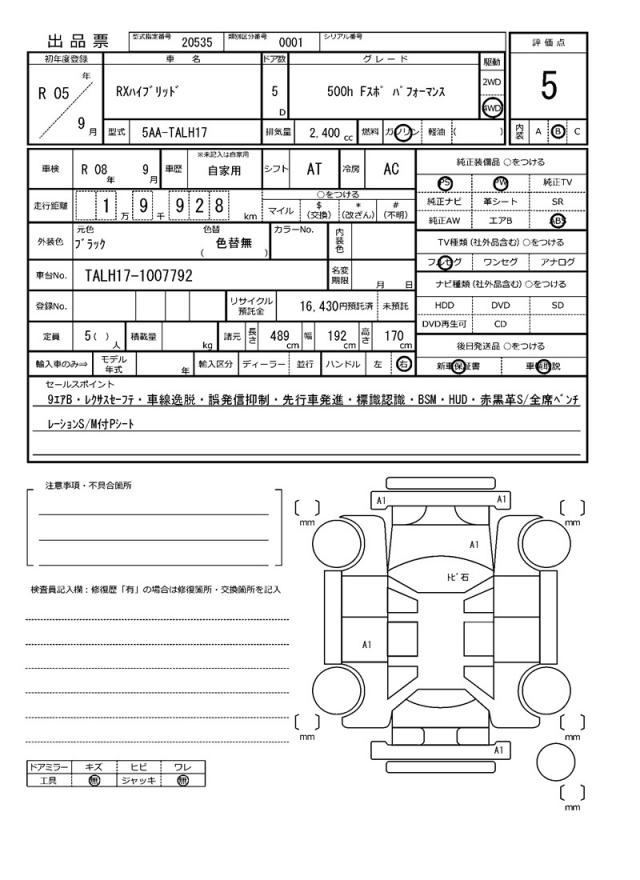 出品票 型式指定番号 20535 類別区分番号 0001 シリアル番号
評価点
5
内装 A B C
初年度登録 車名 ドア数 グレード 駆動
R 05 年 9 月
RXハイブリッド 5 D 500h Fスポ パフォーマンス
2WD
4WD
型式 5AA-TALH17 排気量 2,400 cc 燃料 ガソリン 軽油 ( )
車検 R 08 年 9 月 車歴 ※未記入は自家用 自家用 シフト AT 冷房 AC
走行距離 1 万 9 千 9 2 8 km
○をつける
マイル $ (交換) * (改ざん) # (不明)
外装色 元色 ブラック 色替 色替無 ( ) カラーNo. 内装色
車台No. TALH17-1007792 名変期限 月 日
登録No. リサイクル預託金 16,430円預託済 未預託
定員 5( ) 人 積載量 kg 諸元 長さ 489 cm 幅 192 cm 高さ 170 cm
輸入車のみ⇒ モデル年式 年 輸入区分 ディーラー 並行 ハンドル 左 右
純正装備品 ○をつける
PS PW 純正TV
純正ナビ 革シート SR
純正AW エアB ABS
TV種類 (社外品含む) ○をつける
フルセグ ワンセグ アナログ
ナビ種類 (社外品含む) ○をつける
HDD DVD SD
DVD再生可 CD
後日発送品 ○をつける
新車保証書 車輌取説
セールスポイント
9エアB・レクサスセーフテ・車線逸脱・誤発信抑制・先行車発進・標識認識・BSM・HUD・赤黒革S/全席ベンチ
レーションS/M付Pシート
注意事項・不具合箇所
検査員記入欄：修復歴「有」の場合は修復箇所・交換箇所を記入
ドアミラー キズ ヒビ ワレ
工具 無 ジャッキ 無
A1 A1
mm mm
A1
トビ石
A1
mm mm
A1
mm